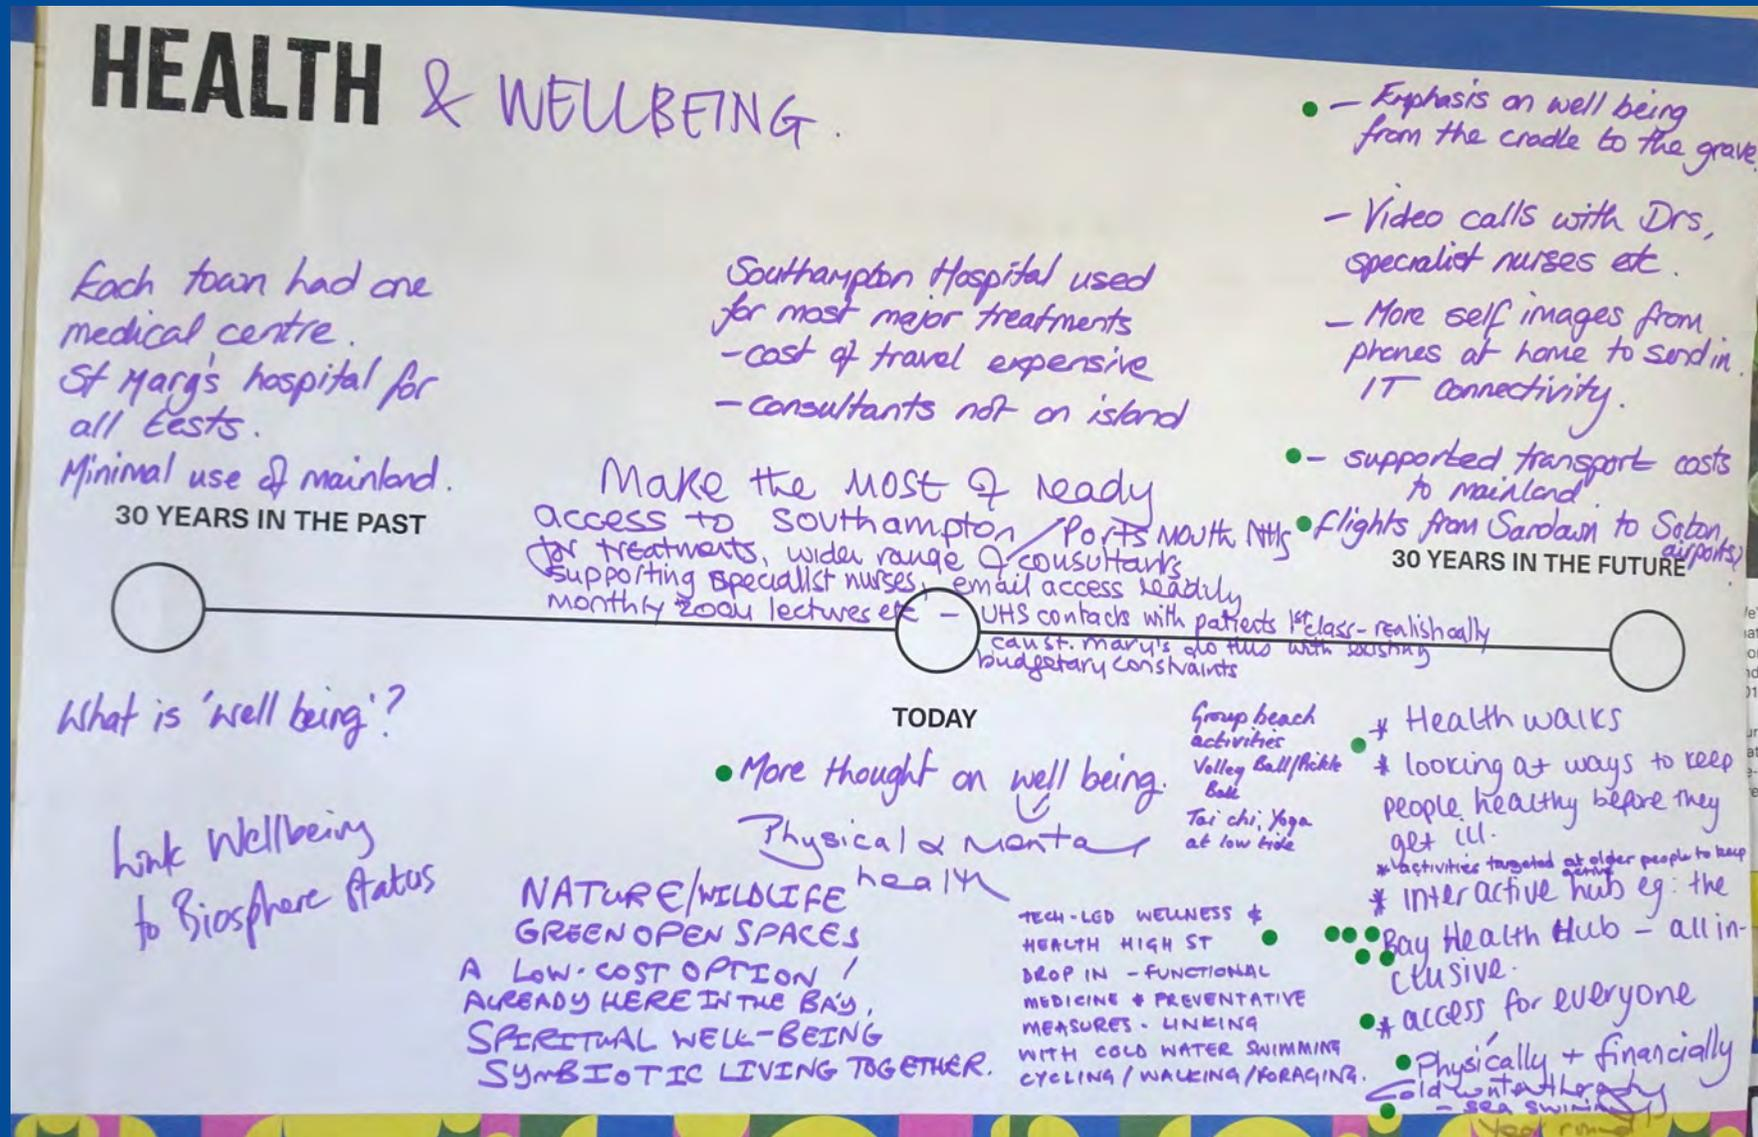 HEALTH & WELLBEING.
Each town had one
medical centre.
St Mary's hospital for
all tests.
Minimal use of mainland.
30 YEARS IN THE PAST
What is 'well being'?
Link Wellbeing
to Biosphere Status
Southampton Hospital used
for most major treatments
- cost of travel expensive
- consultants not on island
Make the most of ready
access to Southampton / Portsmouth NHS
for treatments, wider range of consultants
supporting specialist nurses, email access readily
monthly zoom lectures etc - UHS contacts with patients 1st class - realistically
can st. mary's do this with existing
budgetary constraints
TODAY
• More thought on well being.
Physical & Mental
health
NATURE/WILDLIFE
GREEN OPEN SPACES
A LOW-COST OPTION!
ALREADY HERE IN THE BAY,
SPIRITUAL WELL-BEING
SYMBIOTIC LIVING TOGETHER.
Group beach
activities
Volley Ball/Pickle
Ball
Tai chi, Yoga
at low tide
TECH-LED WELLNESS &
HEALTH HIGH ST
DROP IN - FUNCTIONAL
MEDICINE & PREVENTATIVE
MEASURES - LINKING
WITH COLD WATER SWIMMING
CYCLING/WALKING/FORAGING.
- Emphasis on well being
from the cradle to the grave.
- Video calls with Drs,
specialist nurses etc.
- More self images from
phones at home to send in.
IT connectivity.
- supported transport costs
to mainland.
• flights from Sandown to Soton
airports)
30 YEARS IN THE FUTURE
* Health walks
* looking at ways to keep
people healthy before they
get ill.
* activities targeted at older people to keep
active
* interactive hub eg: the
Bay Health Hub - all in-
clusive.
* access for everyone
• Physically + financially
Cold water therapy
- sea swimming
Year round